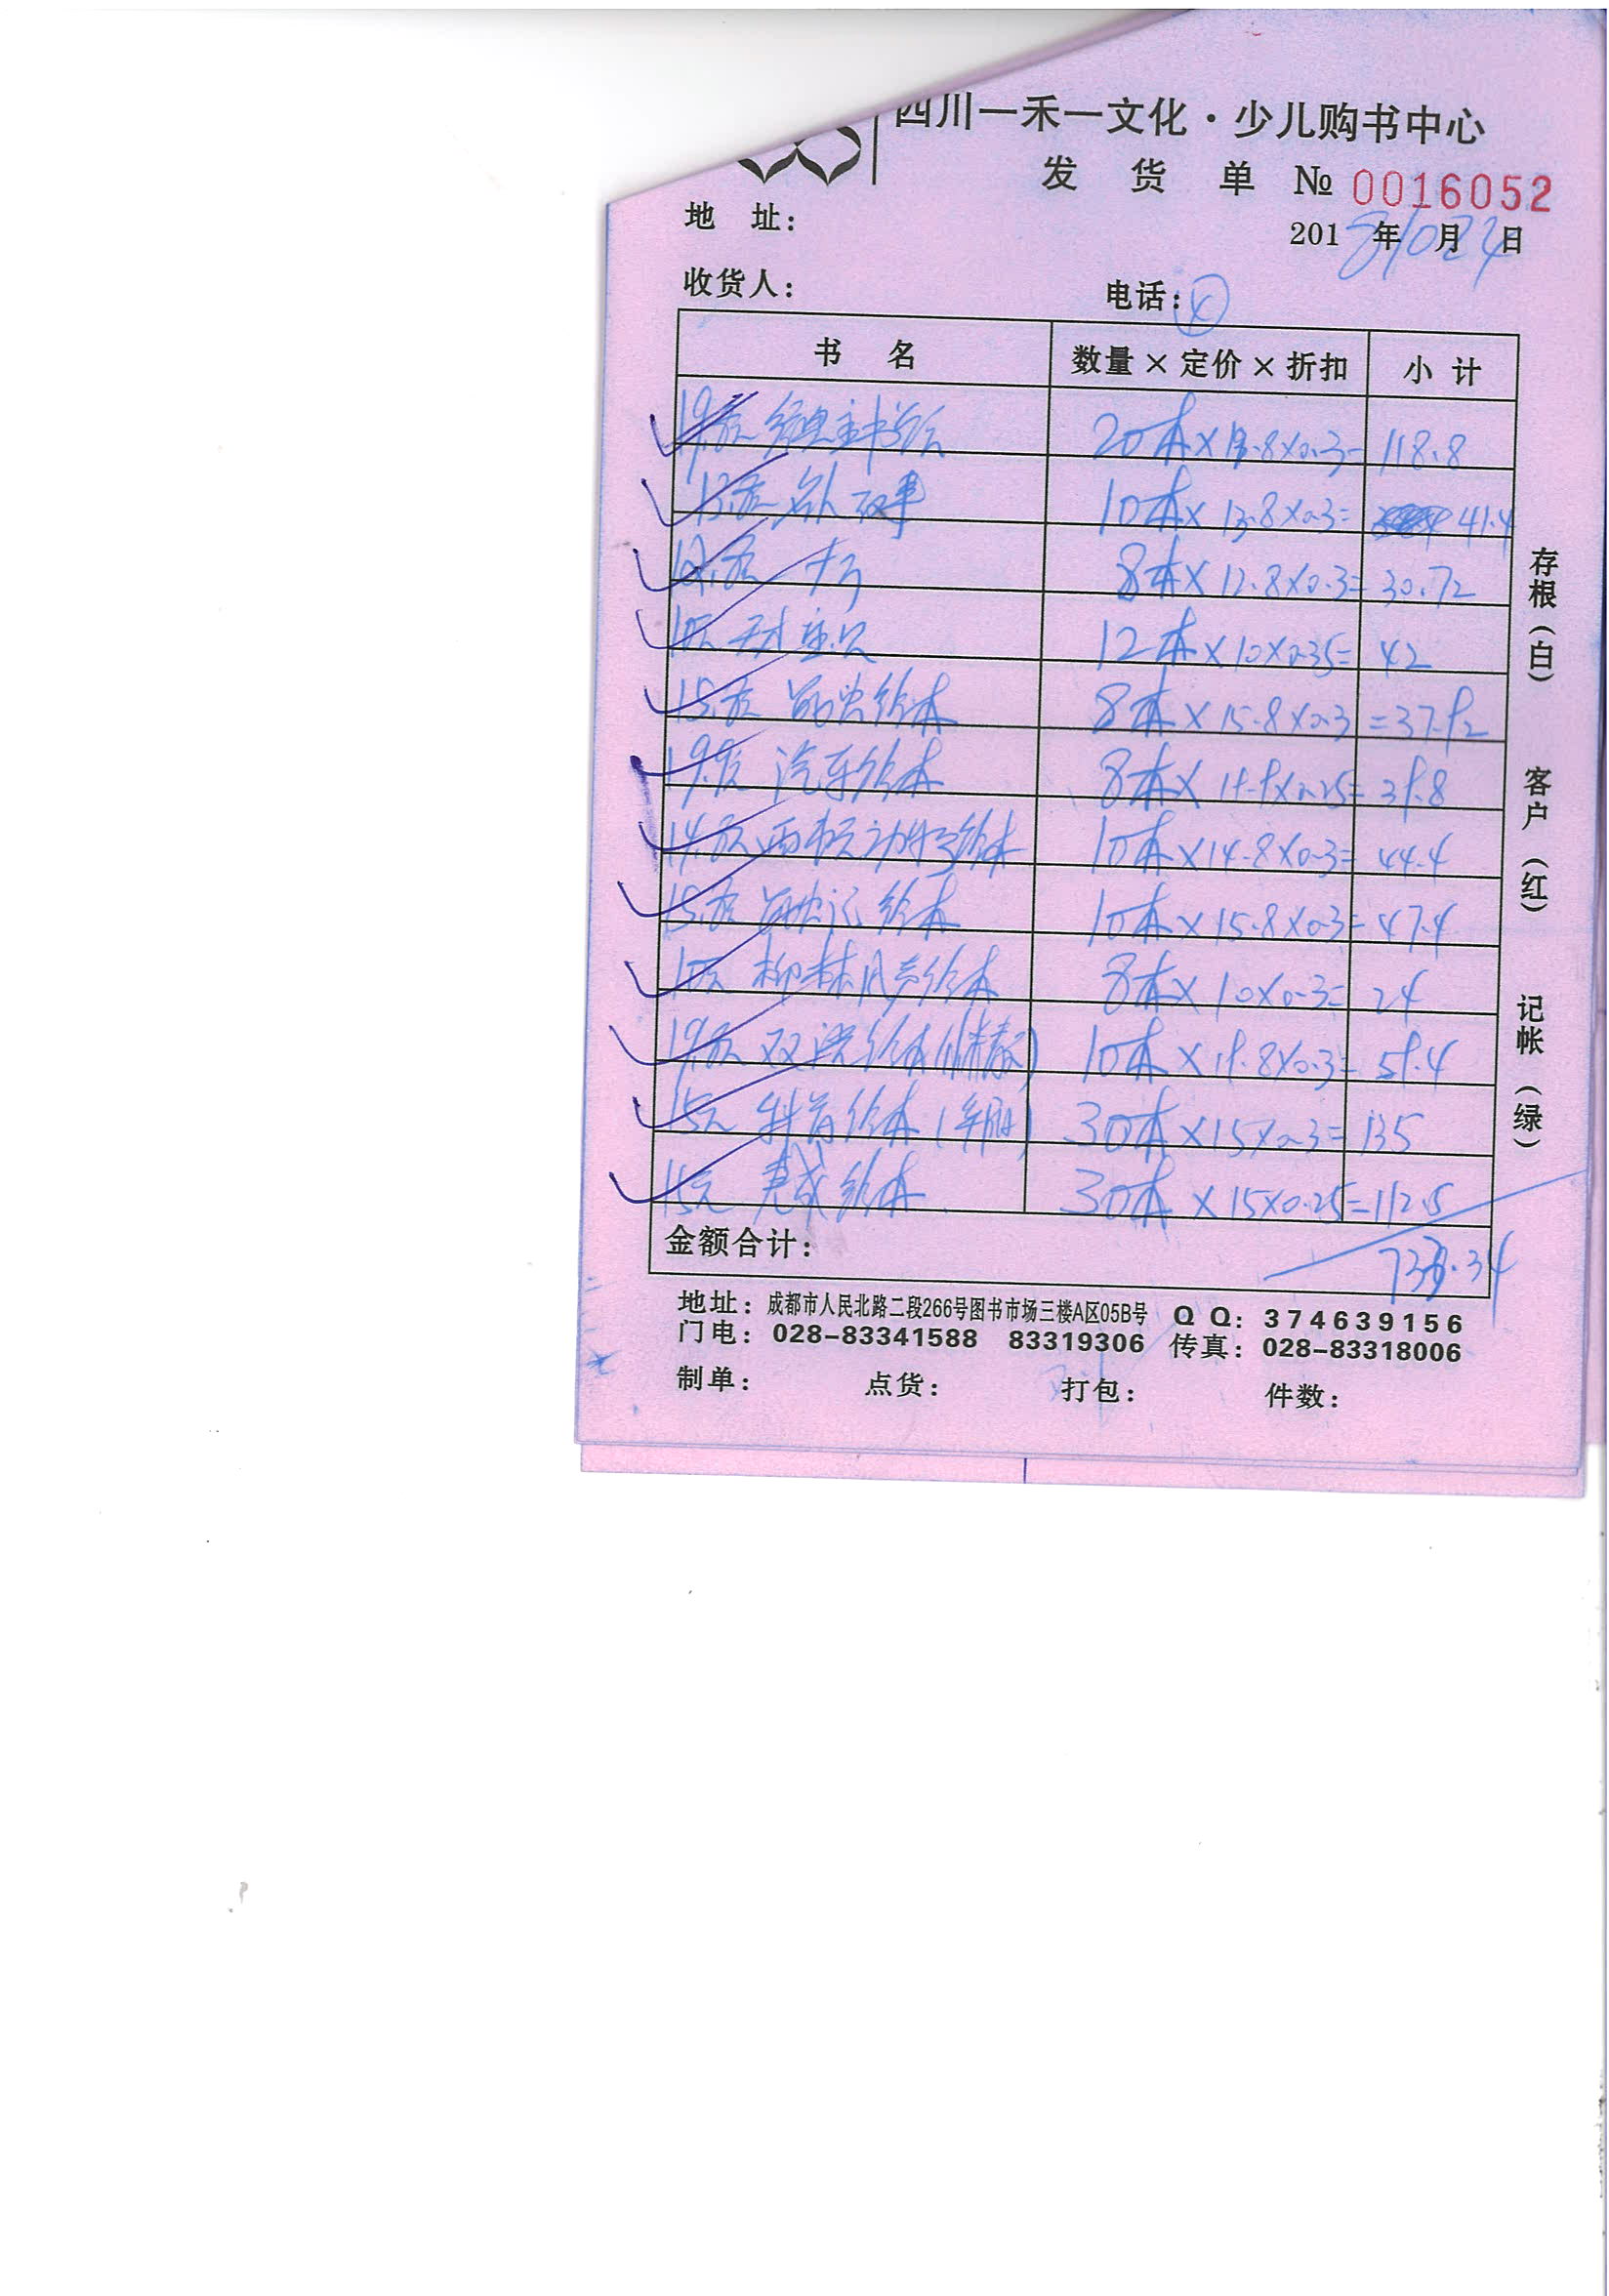 四川一禾一文化·少儿购书中心
发 货 单 № 0016052
地 址:
2018年10月24日
收货人: 电话: ④
书 名 数量×定价×折扣 小 计
19.8元 20本×19.8×0.3= 118.8
13.8元 名人故事 10本×13.8×0.3= 41.4
12.8元 8本×12.8×0.3= 30.72
10元 12本×10×0.35= 42
15.8元 昆虫绘本 8本×15.8×0.3 =37.92
19.9元 汽车绘本 8本×19.9×0.25= 39.8
14.8元 西顿动物绘本 10本×14.8×0.3= 44.4
15.8元 昆虫记绘本 10本×15.8×0.3= 47.4
10元 柳林风声绘本 8本×10×0.3= 24
19.8元 双语绘本 10本×19.8×0.3= 59.4
15元 科普绘本 30本×15×0.3= 135
15元 绘本 30本×15×0.25= 112.5
金额合计: 733.34
地址:成都市人民北路二段266号图书市场三楼A区05B号 QQ:374639156
门电:028-83341588 83319306 传真:028-83318006
制单: 点货: 打包: 件数:
存根(白) 客户(红) 记帐(绿)